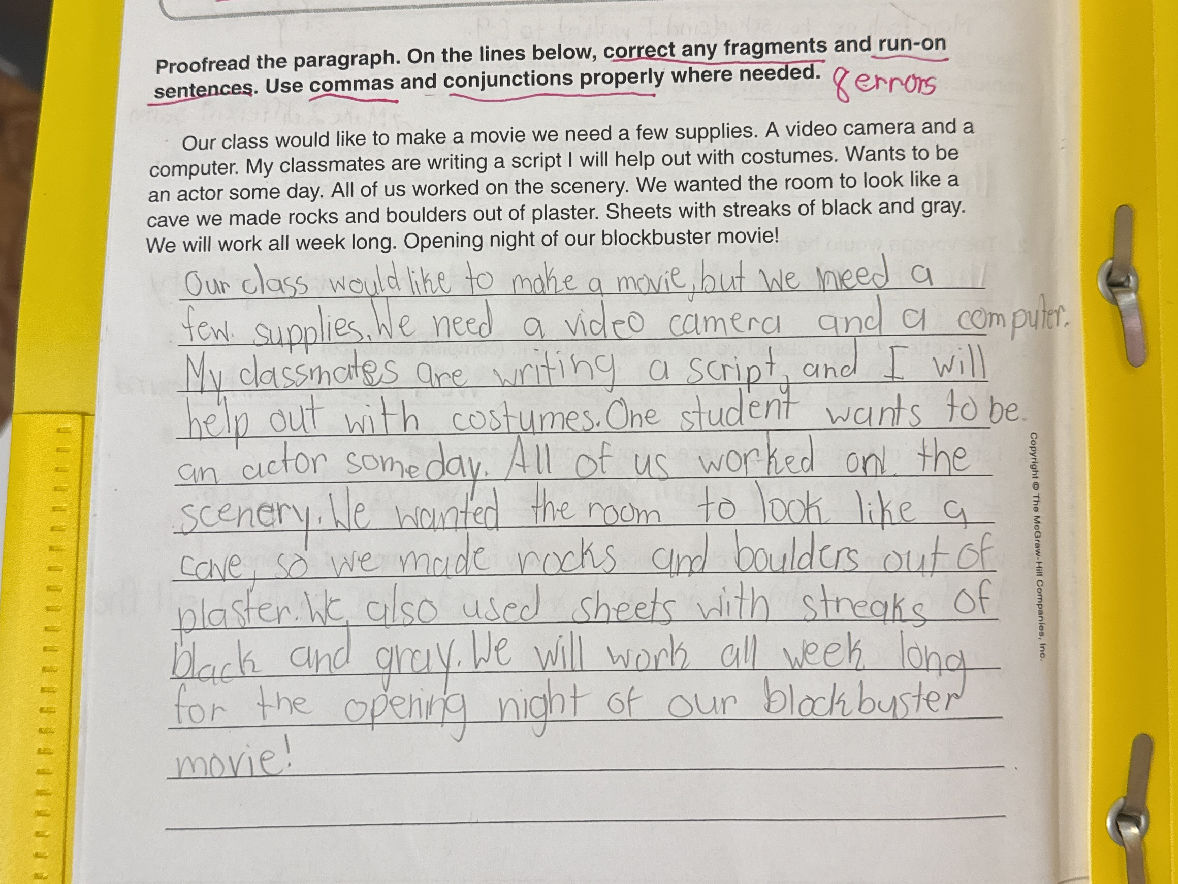 Proofread the paragraph. On the lines below, correct any fragments and run-on
sentences. Use commas and conjunctions properly where needed. 8 errors
Our class would like to make a movie we need a few supplies. A video camera and a
computer. My classmates are writing a script I will help out with costumes. Wants to be
an actor some day. All of us worked on the scenery. We wanted the room to look like a
cave we made rocks and boulders out of plaster. Sheets with streaks of black and gray.
We will work all week long. Opening night of our blockbuster movie!
Our class would like to make a movie, but we need a
few supplies. We need a video camera and a computer.
My classmates are writing a script, and I will
help out with costumes. One student wants to be
an actor some day. All of us worked on the
scenery. We wanted the room to look like a
cave, so we made rocks and boulders out of
plaster. We also used sheets with streaks of
black and gray. We will work all week long
for the opening night of our blockbuster
movie!
Copyright © The McGraw-Hill Companies, Inc.